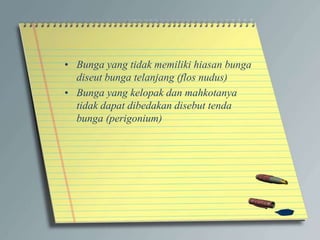 • Bunga yang tidak memiliki hiasan bunga
diseut bunga telanjang (flos nudus)
• Bunga yang kelopak dan mahkotanya
tidak dapat dibedakan disebut tenda
bunga (perigonium)